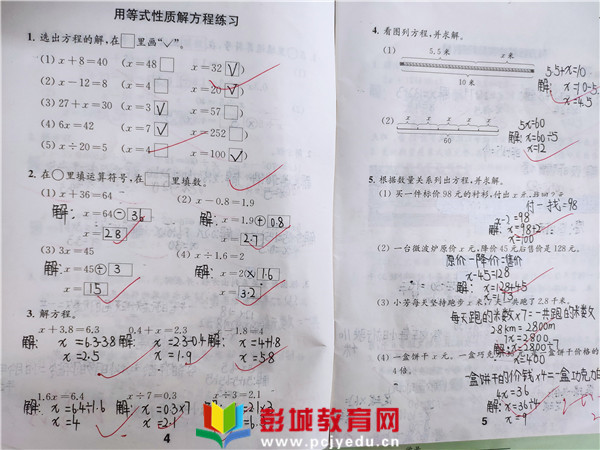 用等式性质解方程练习
1. 选出方程的解,在□里画“√”。
(1) x+8=40 (x=48□ x=32☑)
(2) x-12=8 (x=4□ x=20☑)
(3) 27+x=30 (x=3☑ x=57□)
(4) 6x=42 (x=7☑ x=252□)
(5) x÷20=5 (x=4□ x=100☑)
2. 在○里填运算符号,在□里填数。
(1) x+36=64 (2) x-0.8=1.9
解: x=64-36 解: x=1.9+0.8
x=28 x=2.7
(3) 3x=45 (4) x÷1.6=2
解: x=45÷3 解: x=2×1.6
x=15 x=3.2
3. 解方程。
x+3.8=6.3 0.4+x=2.3 -1.8=4
解: x=6.3-3.8 解: x=2.3-0.4 解: x=4+1.8
x=2.5 x=1.9 x=5.8
1.6x=6.4 x÷7=0.3 x÷3=2.1
解: x=6.4÷1.6 解: x=0.3×7 x=2.1×3
x=4 x=2.1 x=6.
4
4. 看图列方程,并求解。
(1) 5.5米 x米
10米
5.5+x=10
解: x=10-5.5
x=4.5
(2) x x x x x
60
5x=60
解: x=60÷5
x=12
5. 根据数量关系列出方程,并求解。
(1) 买一件标价98元的衬衫,付出x元,找回2元。
付-找=98
x-2=98
解: x=98+2
x=100
(2) 一台微波炉原价x元,降价45元后售价是128元。
原价-降价=售价
x-45=128
解: x=128+45
(3) 小芳每天坚持跑步x米,共跑了2.8千米。
每天跑的米数×7=一共跑的米数
2.8km=2800m
7x=2800
解: x=2800÷7
x=400
(4) 一盒饼干x元,一盒巧克 饼干价格的
4倍。
一盒饼干的价钱×4=一盒巧克力
4x=36
解: x=36÷4
x=9
5
彭城教育网
www.pcjyedu.cn